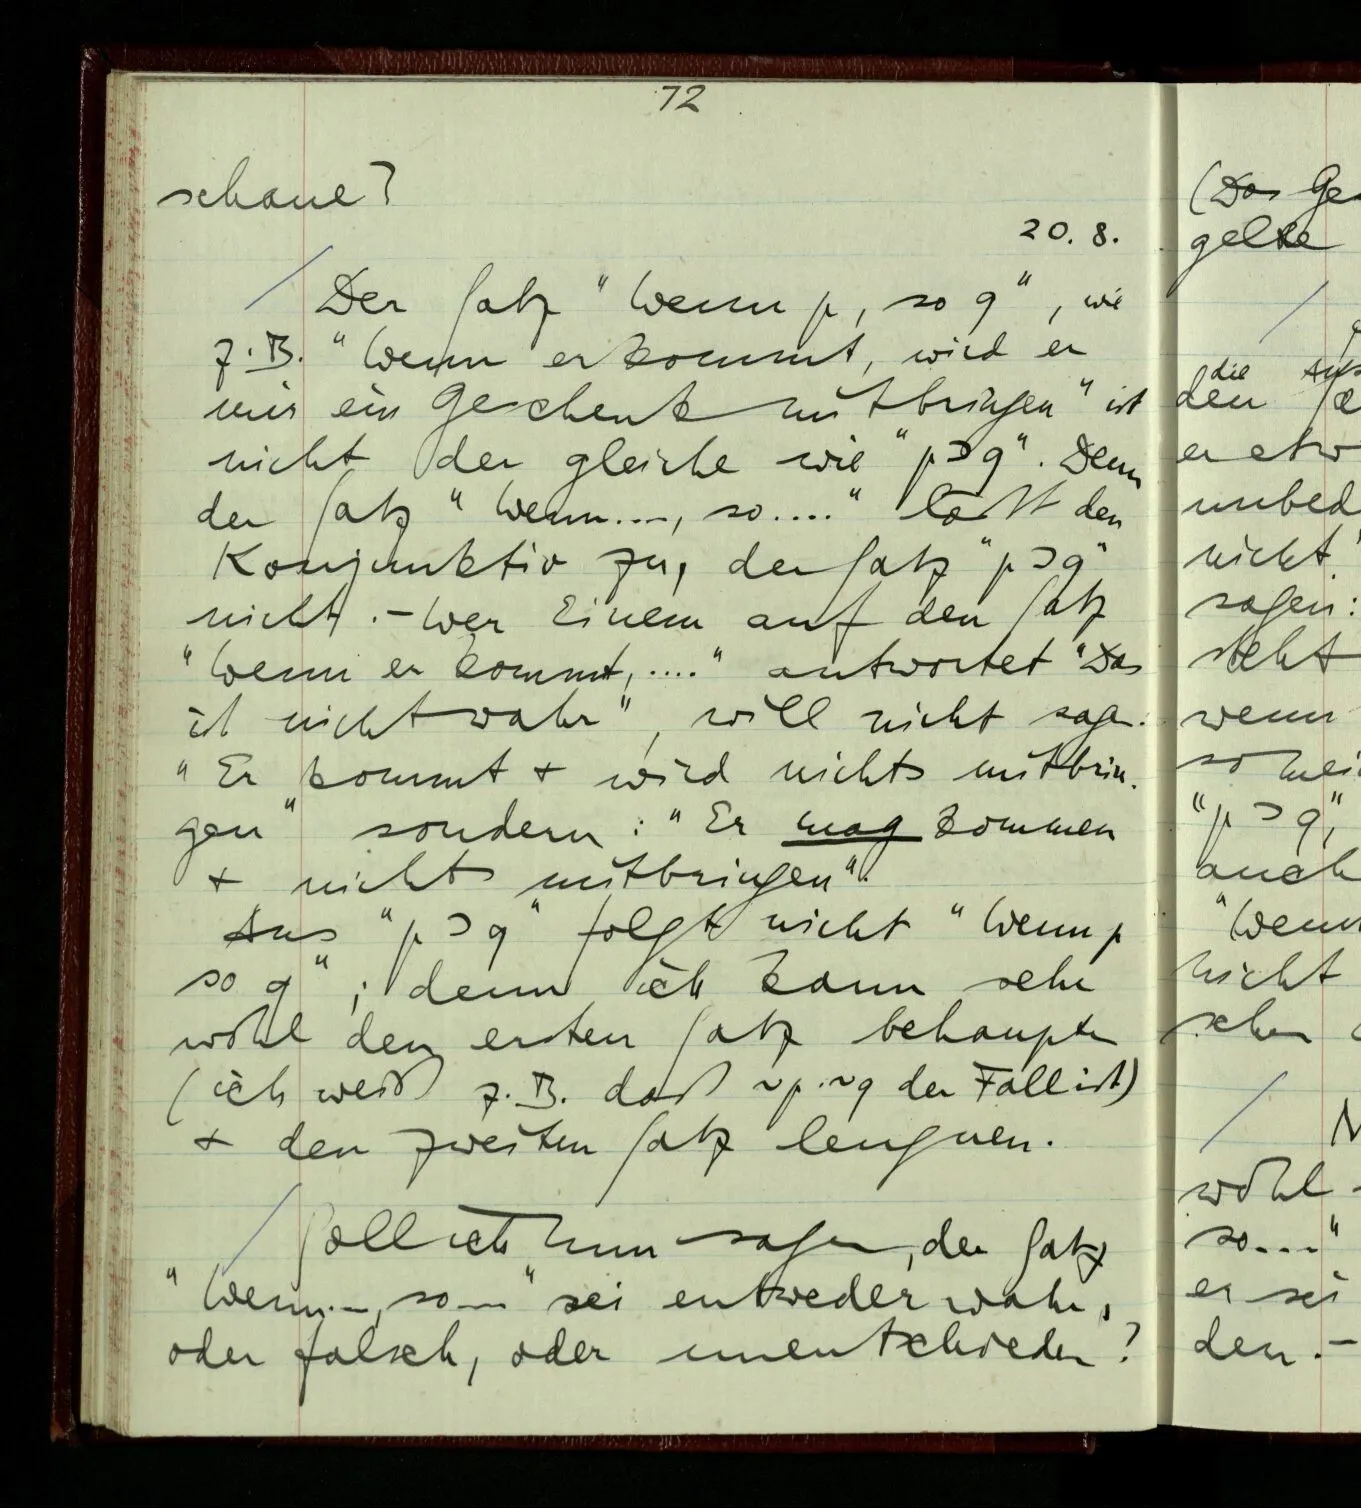 72
schaue?
20. 8.
/ Der Satz "Wenn p, so q", wie
z.B. "Wenn er kommt, wird er
mir ein Geschenk mitbringen" ist
nicht der gleiche wie "p⊃q". Denn
der Satz "Wenn...., so...." läßt den
Konjunktiv zu, der Satz "p⊃q"
nicht. – Wer Einem auf den Satz
"Wenn er kommt,...." antwortet "Das
ist nicht wahr", will nicht sagen:
"Er kommt + wird nichts mitbrin-
gen" sondern: "Er mag kommen
+ nichts mitbringen".
Aus "p⊃q" folgt nicht "Wenn p
so q"; denn ich kann sehr
wohl den ersten Satz behaupten
(ich weiß z.B. daß ~p.~q der Fall ist)
+ den zweiten Satz leugnen.
/ Soll ich nun sagen, der Satz
"Wenn..., so..." sei entweder wahr,
oder falsch, oder unentschieden?
(Das Ge
gelte
/
die Aus
den Sä
er etw
unbed
nicht.
sagen:
steht
wenn
so mei
"p⊃q",
auch
"Wenn
nicht
schen
/ N
wohl
so...."
er sei
den. –